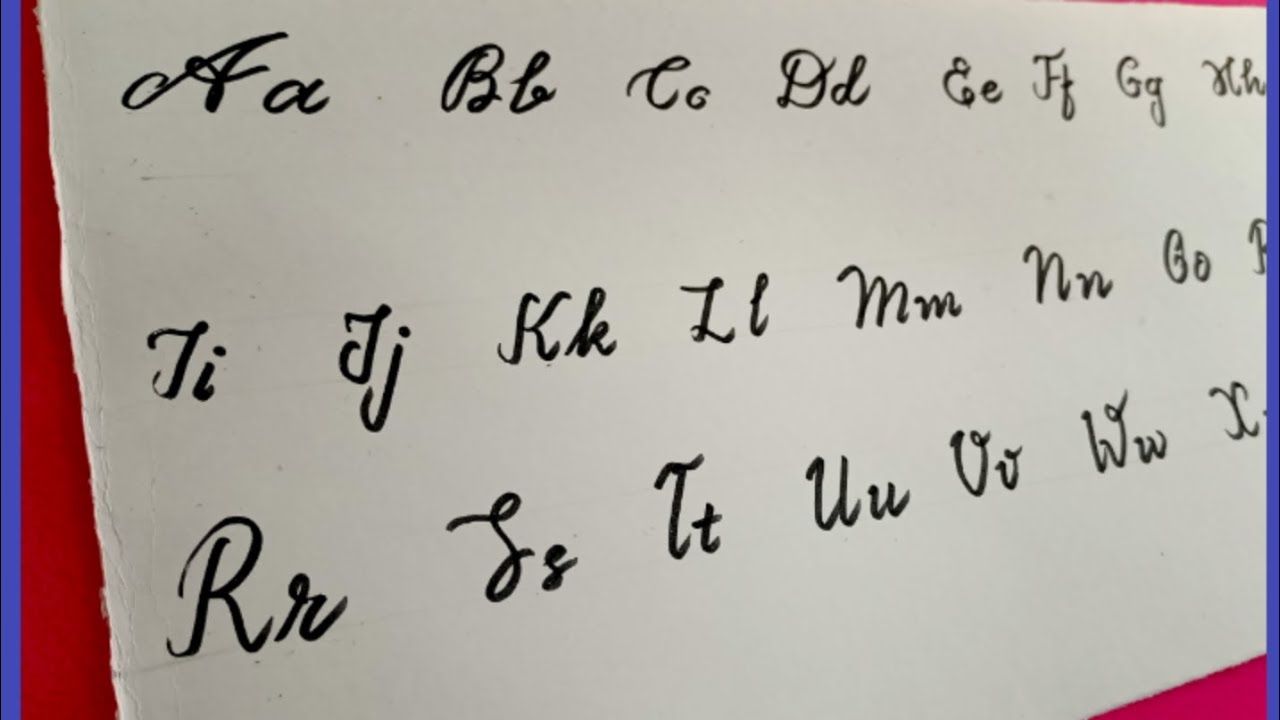 Aa Bb Cc Dd Ee Ff Gg Hh
Ii Jj Kk Ll Mm Nn Oo P
Rr Ss Tt Uu Vv Ww X